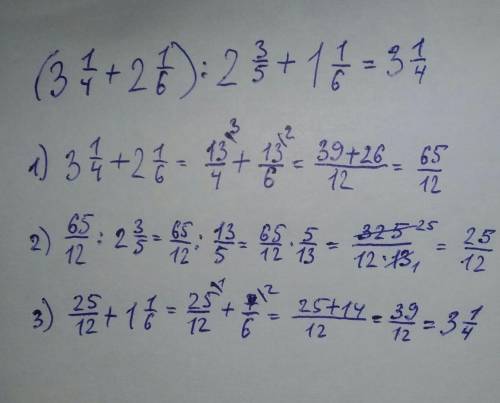 (3 1/4 + 2 1/6) : 2 3/5 + 1 1/6 = 3 1/4
1) 3 1/4 + 2 1/6 = 13/4 \3 + 13/6 \2 = 39+26/12 = 65/12
2) 65/12 : 2 3/5 = 65/12 : 13/5 = 65/12 · 5/13 = 325 25/12·13 1 = 25/12
3) 25/12 + 1 1/6 = 25/12 \1 + 7/6 \2 = 25+14/12 = 39/12 = 3 1/4